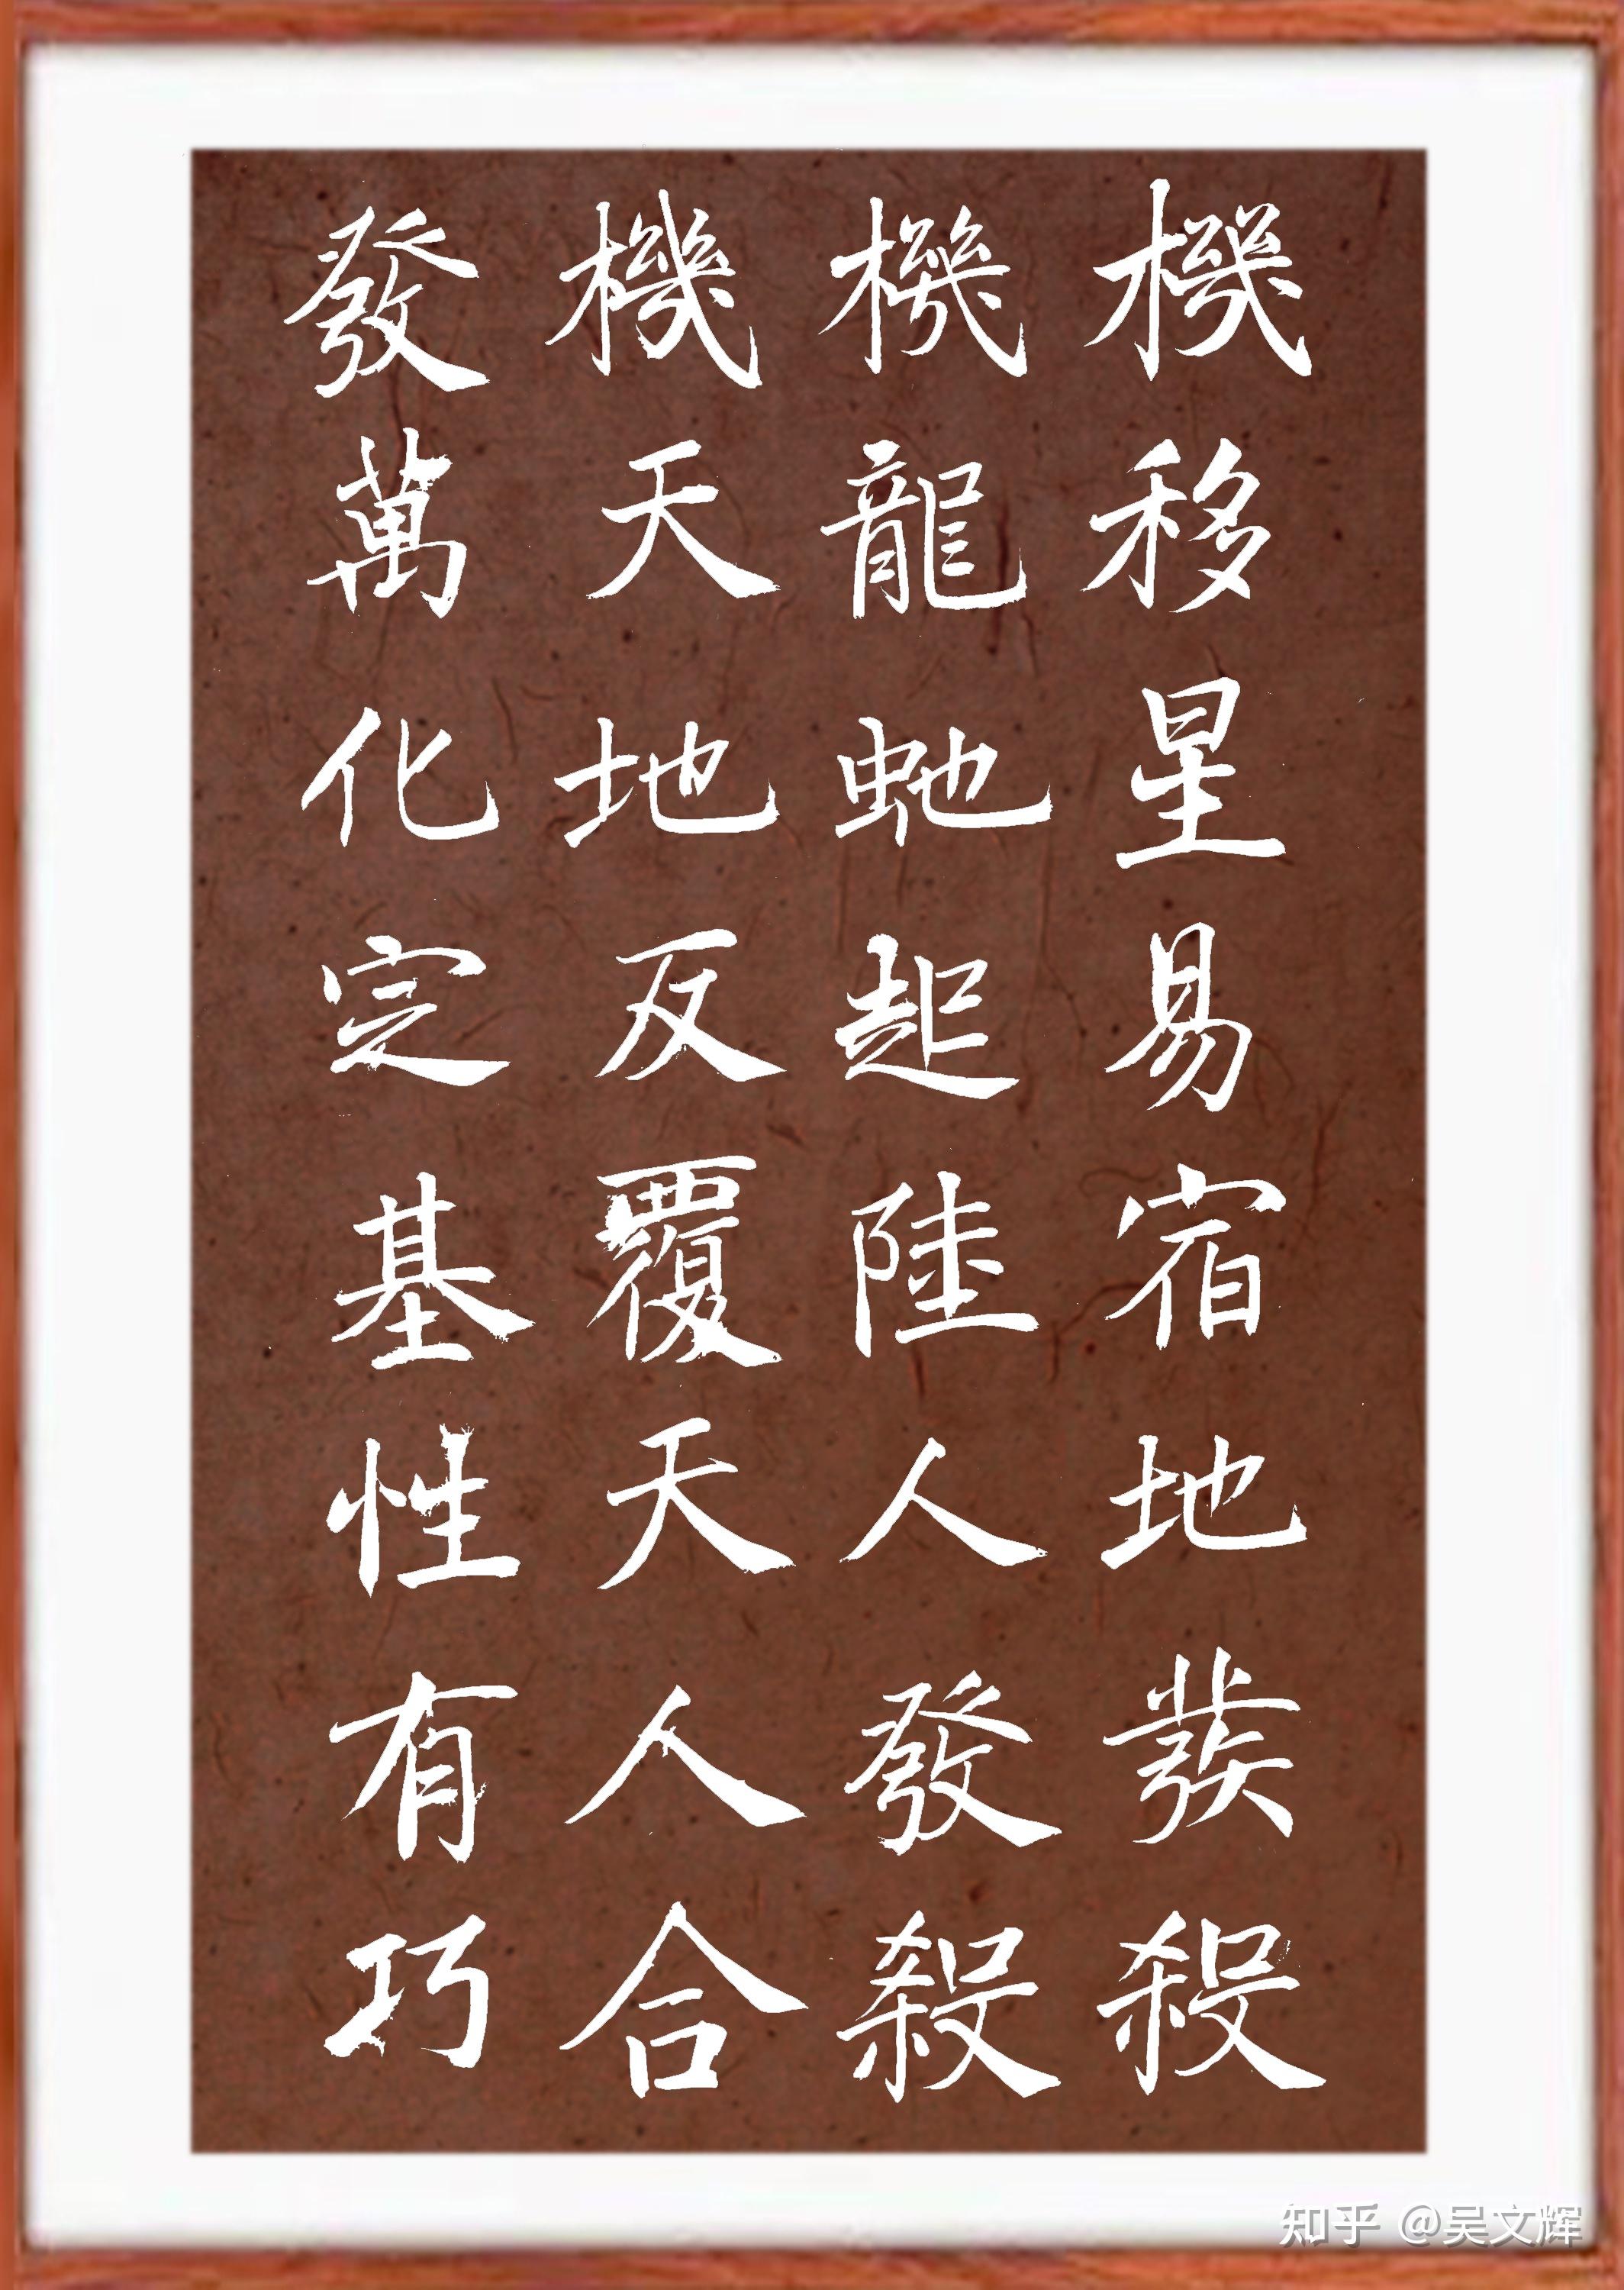 機移星易宿地發殺
機龍虵起陸人發殺
機天地反覆天人合
發萬化定基性有巧
知乎 @吴文辉